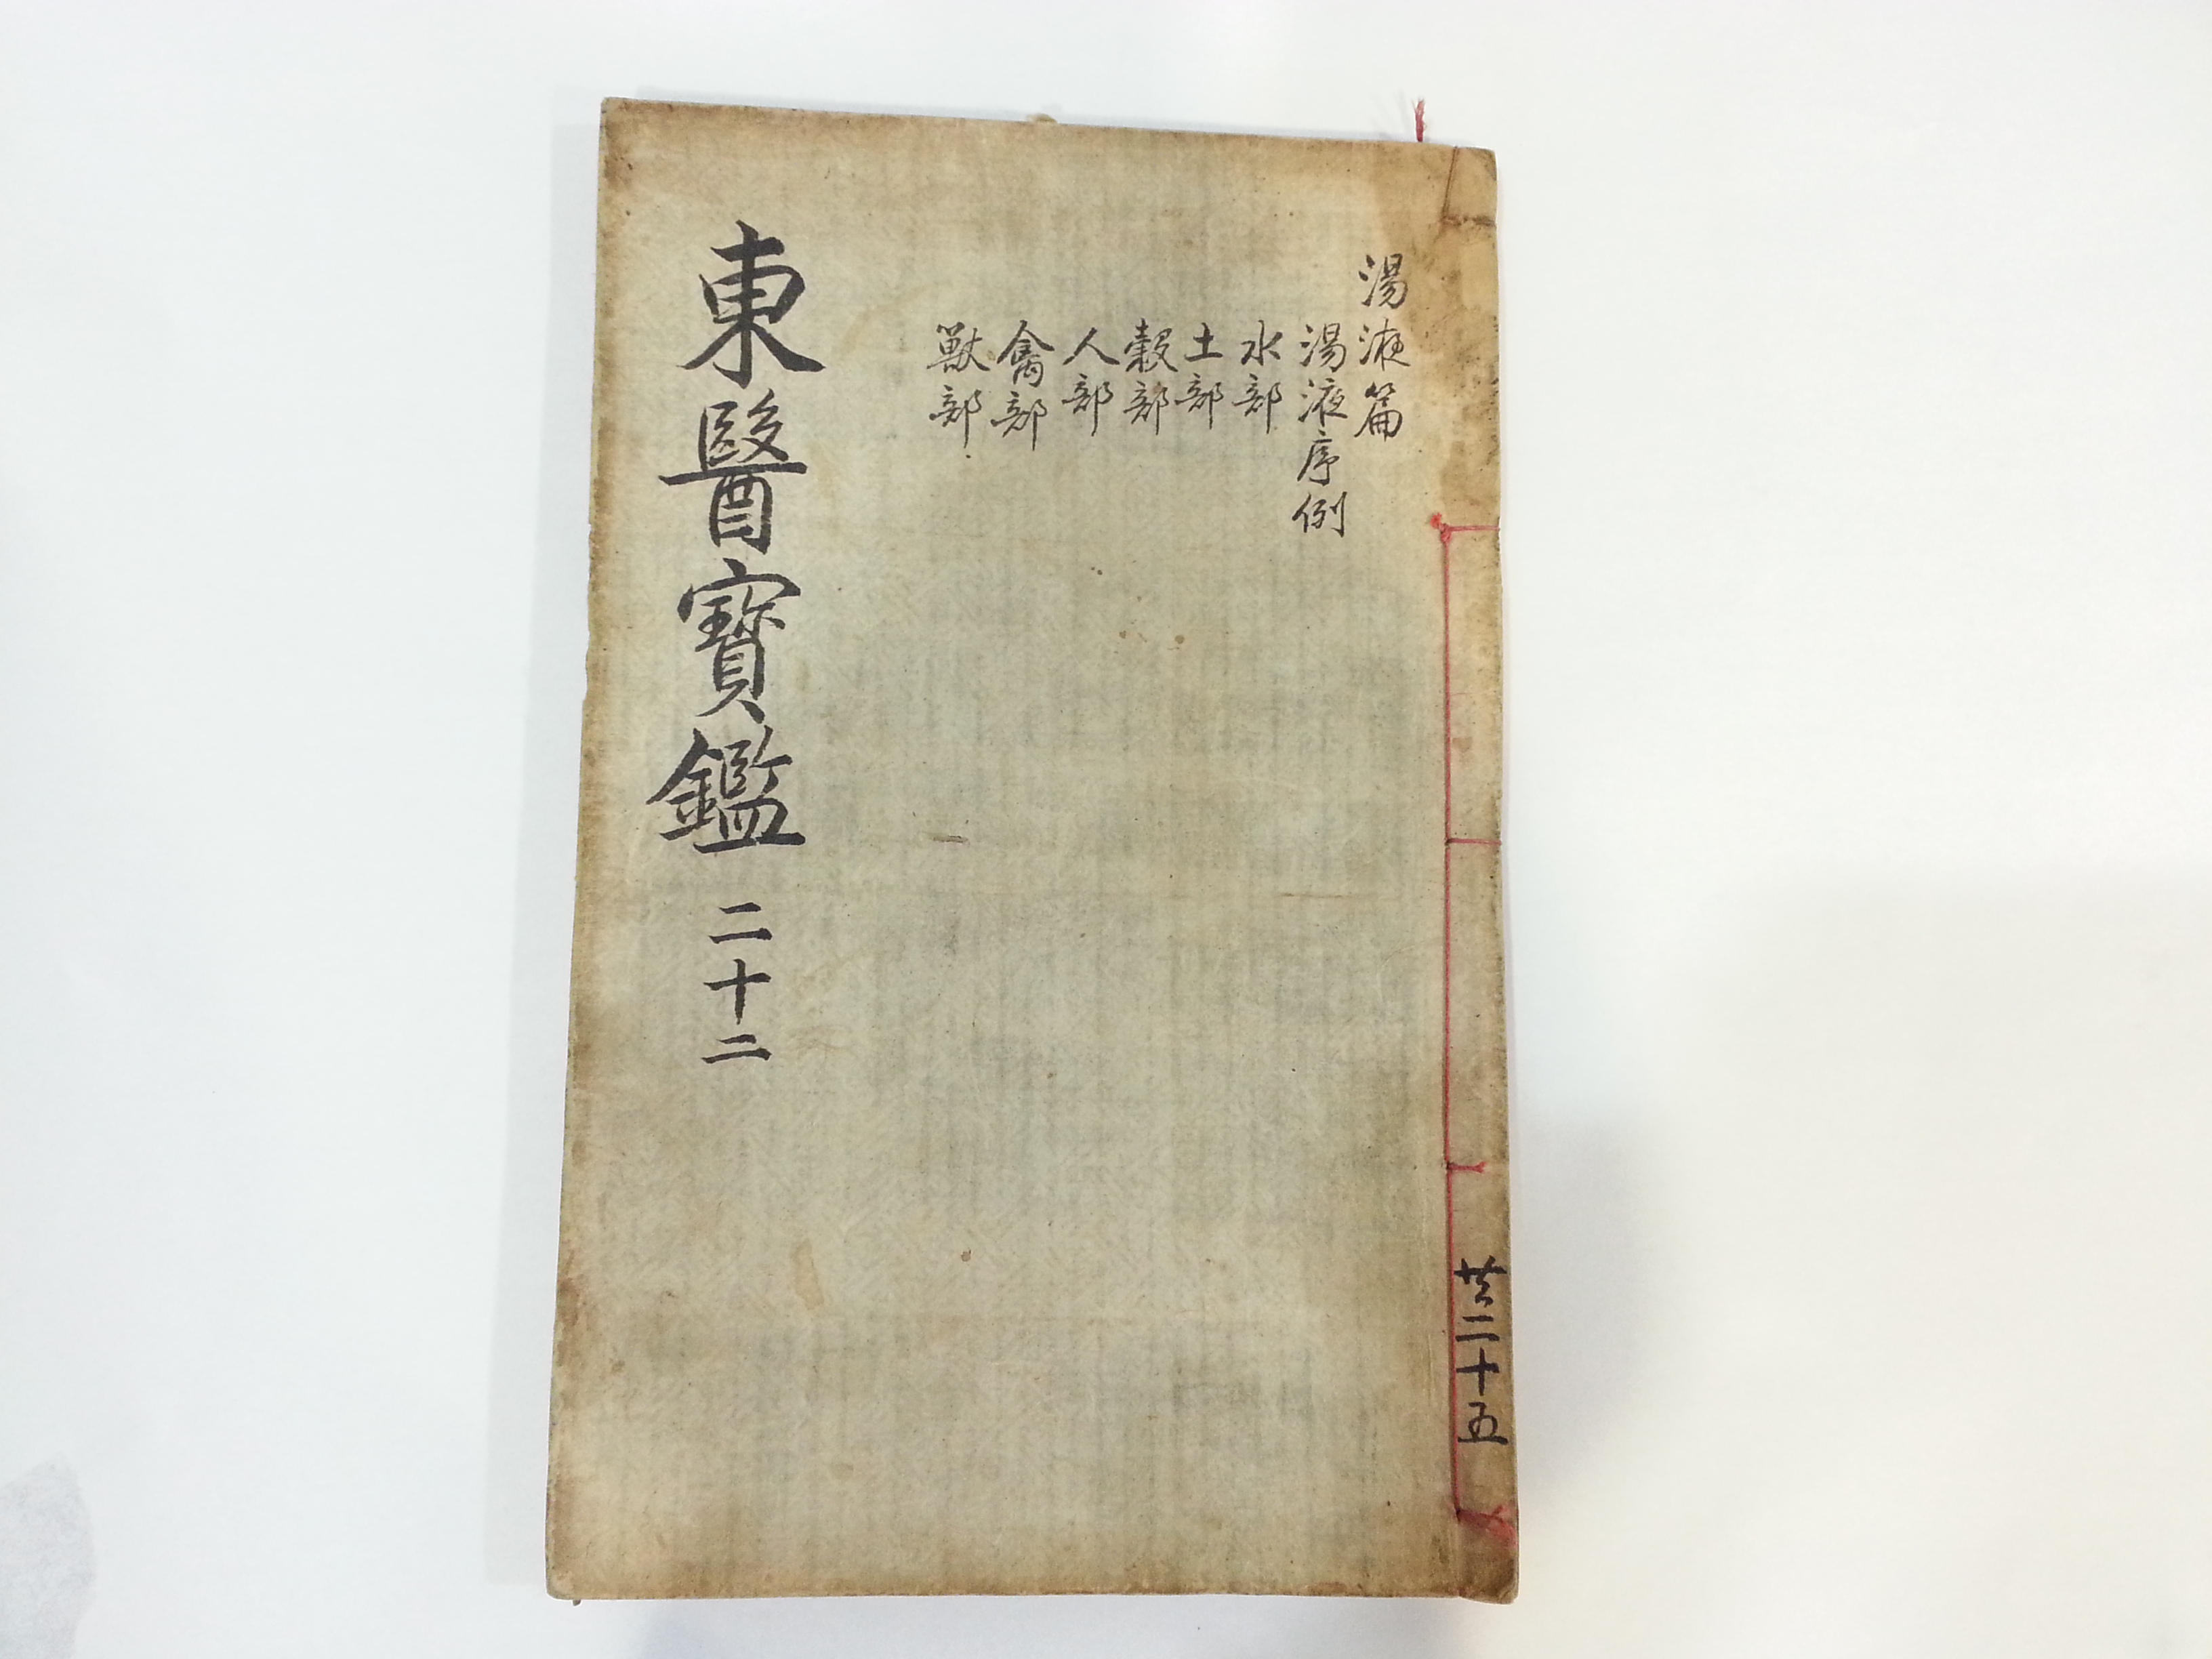 湯液篇
湯液序例
水部
土部
穀部
人部
禽部
獸部
東醫寶鑑 二十二
共二十五